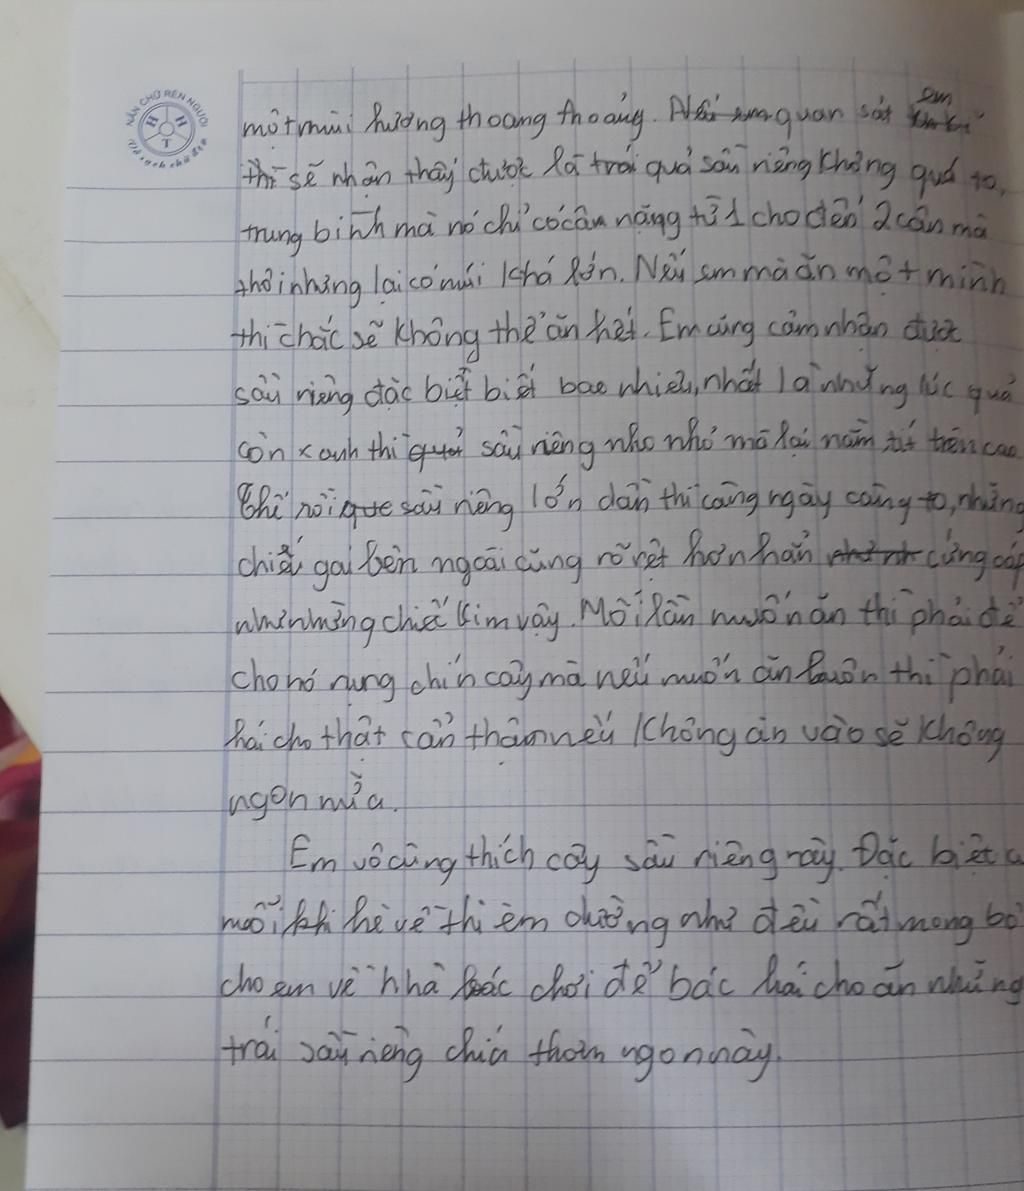 NẮN CHỮ RÈN NGƯỜI
H H T
một mùi hương thoang thoảng. Nếu em quan sát em
thì sẽ nhận thấy được là trái quả sầu riêng không quá to,
trung bình mà nó chỉ có cân nặng từ 1 cho đến 2 cân mà
thôi nhưng lại có múi khá lớn. Nếu em mà ăn một mình
thì chắc sẽ không thể ăn hết. Em cũng cảm nhận được
sầu riêng đặc biệt biết bao nhiêu, nhất là những lúc quả
còn xanh thì quả sầu riêng nho nhỏ mà lại nằm tít trên cao
Thế rồi que sầu riêng lớn dần thì càng ngày càng to, những
chiếc gai bên ngoài cũng rõ rệt hơn hẳn cứng cáp
như những chiếc kim vậy. Mỗi lần muốn ăn thì phải để
cho nó rụng chín cây mà nếu muốn ăn luôn thì phải
hái cho thật cẩn thận nếu không ăn vào sẽ không
ngon nữa.
Em vô cùng thích cây sầu riêng này. Đặc biệt
mỗi khi hè về thì em dường như đều rất mong bố
cho em về nhà bác chơi để bác hái cho ăn những
trái sầu riêng chín thơm ngon này.